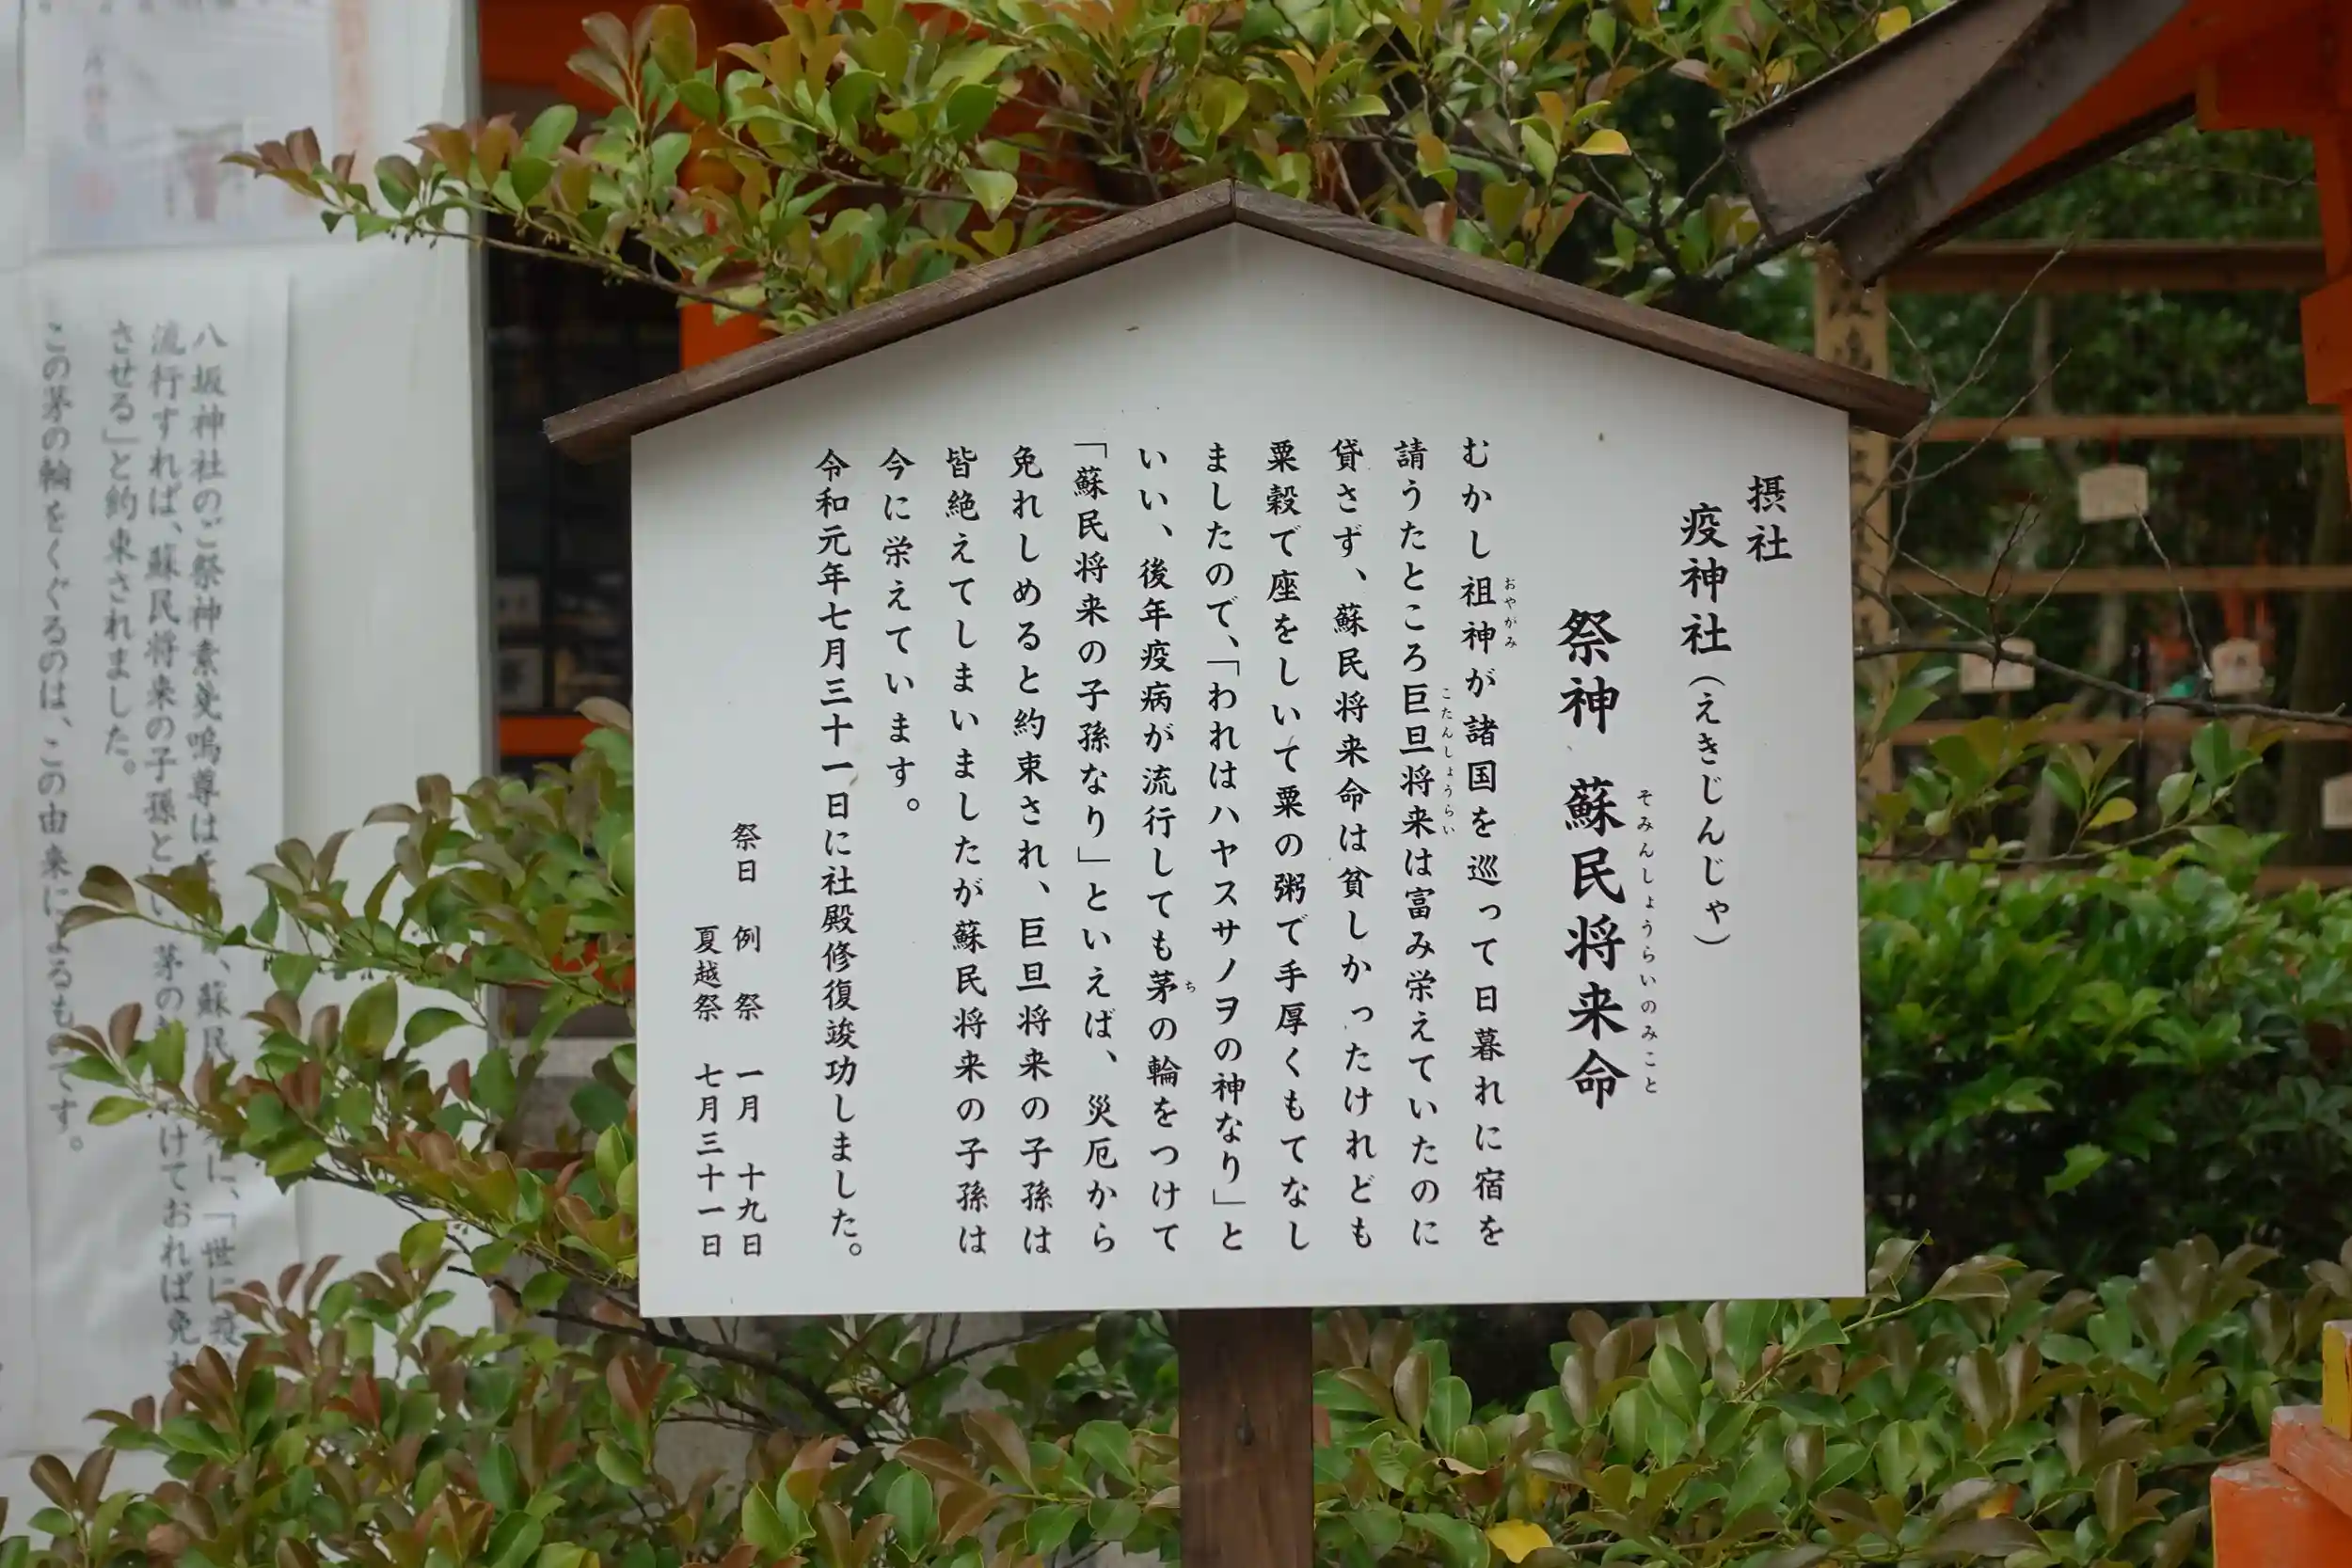 摂社
疫神社(えきじんじゃ)
祭神 蘇民将来命
そみんしょうらいのみこと
むかし祖神が諸国を巡って日暮れに宿を
おやがみ
請うたところ巨旦将来は富み栄えていたのに
こたんしょうらい
貸さず、蘇民将来命は貧しかったけれども
粟穀で座をしいて粟の粥で手厚くもてなし
ましたので、「われはハヤスサノヲの神なり」と
いい、後年疫病が流行しても茅の輪をつけて
ち
「蘇民将来の子孫なり」といえば、災厄から
免れしめると約束され、巨旦将来の子孫は
皆絶えてしまいましたが蘇民将来の子孫は
今に栄えています。
令和元年七月三十一日に社殿修復竣功しました。
祭日 例祭 一月 十九日
夏越祭 七月三十一日
八坂神社のご祭神素戔嗚尊は 、蘇民 に、「世に疫
流行すれば、蘇民将来の子孫と い 茅の けておれば免
させる」と約束されました。
この茅の輪をくぐるのは、この由来によるものです。